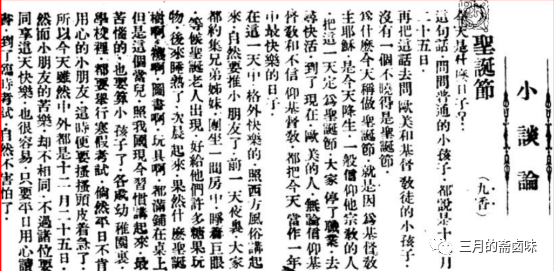 小談論
聖誕節 (九香)
今天是什麼日子？
這句話、問問普通的小孩子、都說是十二月
二十五日、
再把這話去問歐美和基督敎徒的小孩子、
沒有一個不曉得是聖誕節、
爲什麼今天稱做聖誕節、就是因爲基督敎
主耶穌、是今天降生、一般信仰他宗敎的人
把這一天定爲聖誕節、大家停了職業、去
尋快活、到了現在、歐美的人、無論信仰基
督敎和不信仰基督敎、都把今天當作一年
中最快樂的日子、
在這一天中、格外快樂的、照西方風俗講起
來、自然要推小朋友了、前一天夜、大家
都約集兄弟姊妹、團坐一間房中、睜着巨眼
等候聖誕老人出現、好給他們許多糖果玩
物、後來睡熟了、次晨起來、果然什麼聖誕
樹啊、襪啊、圖書啊、玩具啊、都滿鋪在桌上
但是這個當兒、照我國現今習慣講起來、最
苦惱的、也要算小孩子了、各處幼稚園裏、
學校裡、都要舉行寒假考試、倘然平日不肯
用心的小朋友、這時便要搔搔頭皮着急了、
所以今天雖然中外都是十二月二十五日、
然而小朋友的苦樂、却不相同、不過諸位要
同享這天快樂、也很容易、只要平日用心讀
書、到了臨時考試、自然不害怕了。
三月的斋卤味